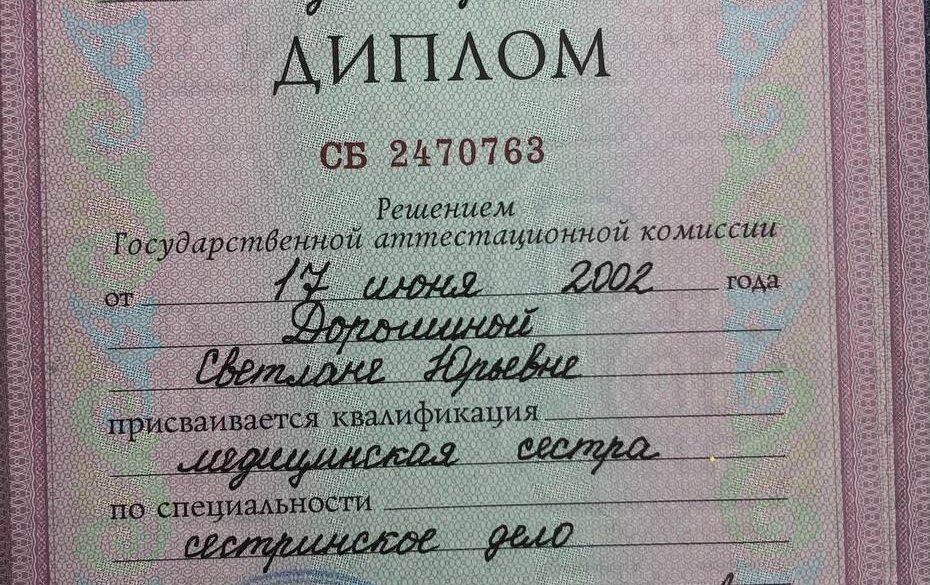 ДИПЛОМ
СБ 2470763
Решением
Государственной аттестационной комиссии
от 17 июня 2002 года
Дорошиной
Светлане Юрьевне
присваивается квалификация
медицинская сестра
по специальности
сестринское дело